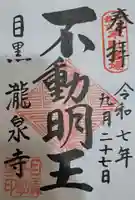 奉拝
令和七年
九月二十七日
不動明王
目黒
瀧泉寺